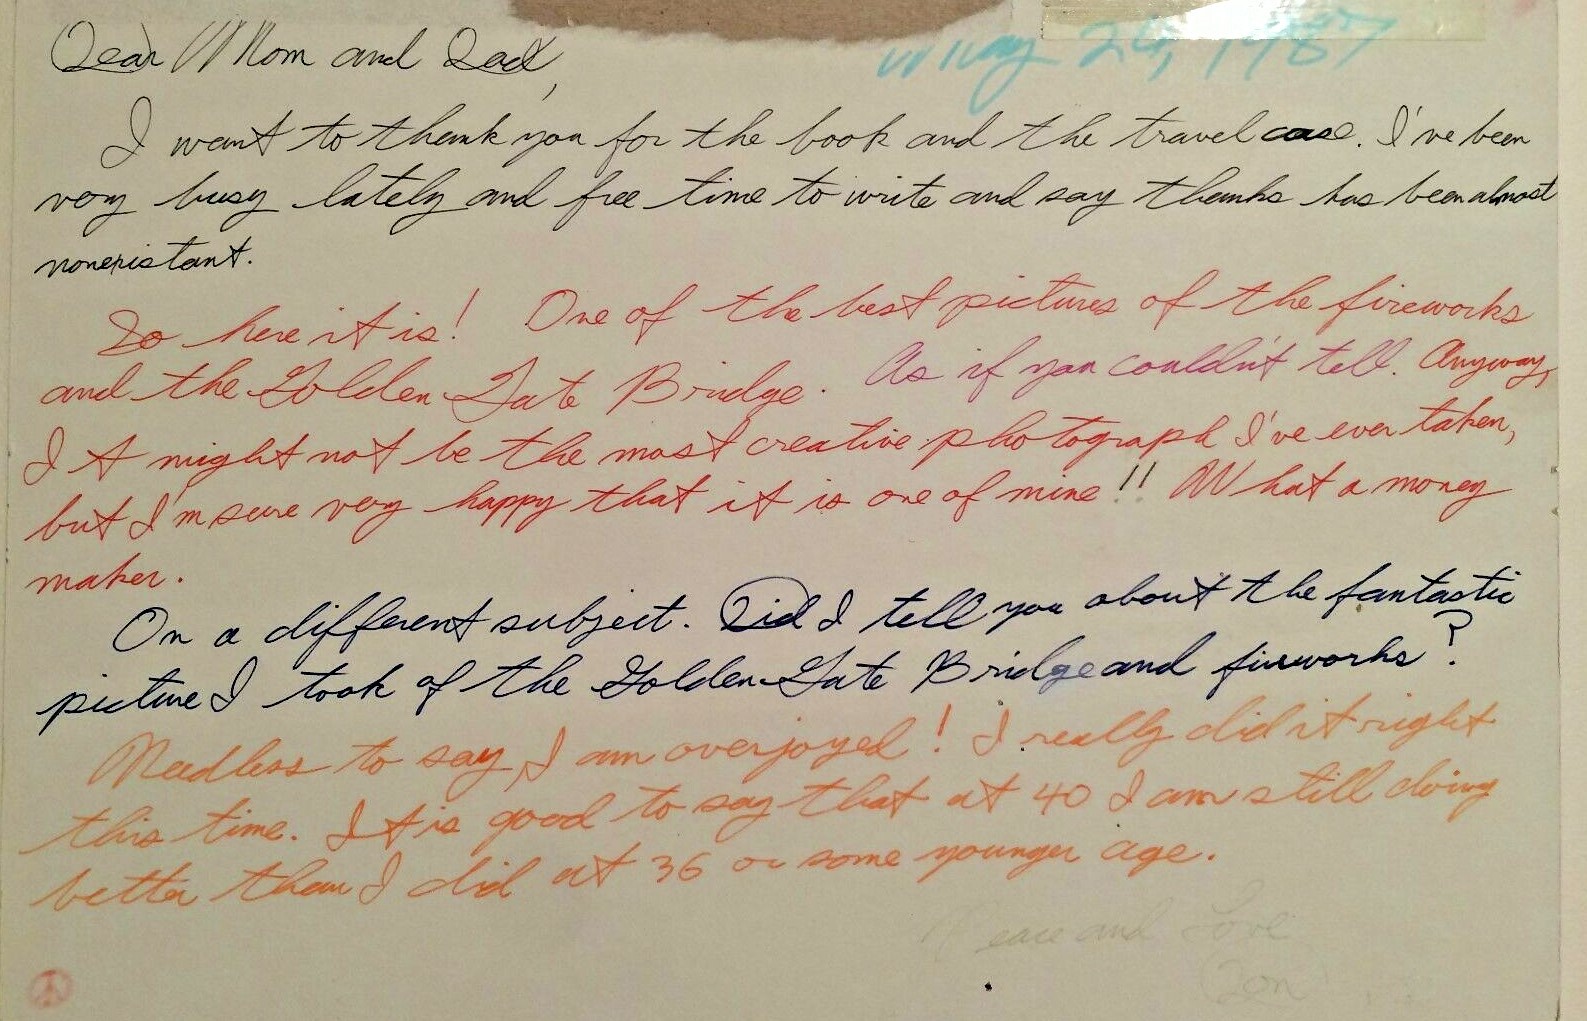 May 26, 1987
Dear Mom and Dad,
I want to thank you for the book and the travel case. I've been
very busy lately and free time to write and say thanks has been almost
nonexistant.
So here it is! One of the best pictures of the fireworks
and the Golden Gate Bridge. As if you couldn't tell. Anyway,
It might not be the most creative photograph I've ever taken,
but I'm sure very happy that it is one of mine!! What a money
maker.
On a different subject. Did I tell you about the fantastic
picture I took of the Golden Gate Bridge and fireworks?
Needless to say, I am overjoyed! I really did it right
this time. It is good to say that at 40 I am still doing
better than I did at 36 or some younger age.
Peace and Love
Ron